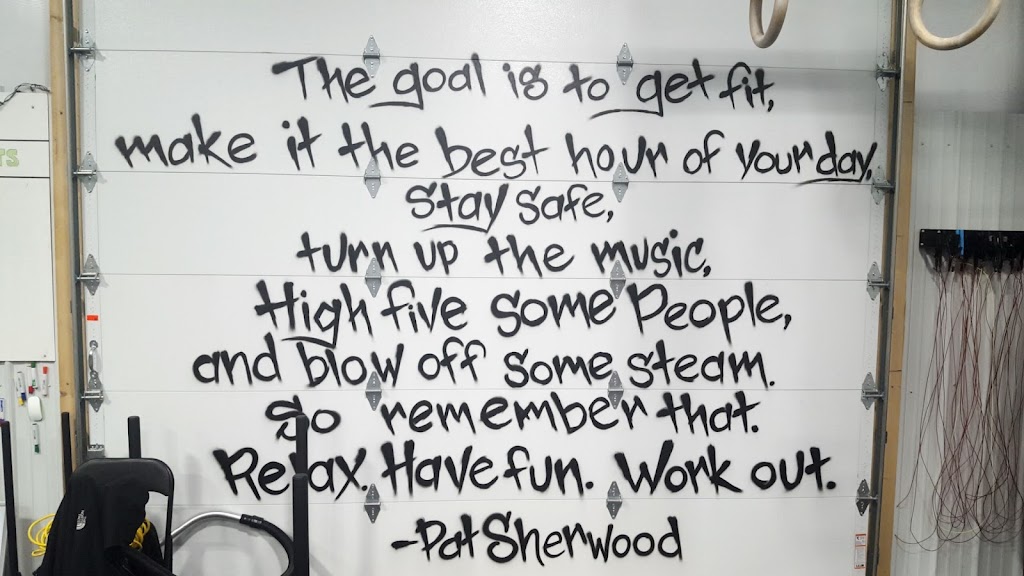 The goal is to get fit,
make it the best hour of your day.
Stay safe,
turn up the music,
High five some People,
and blow off some steam.
So remember that.
Relax. Have fun. Work out.
-Pat Sherwood